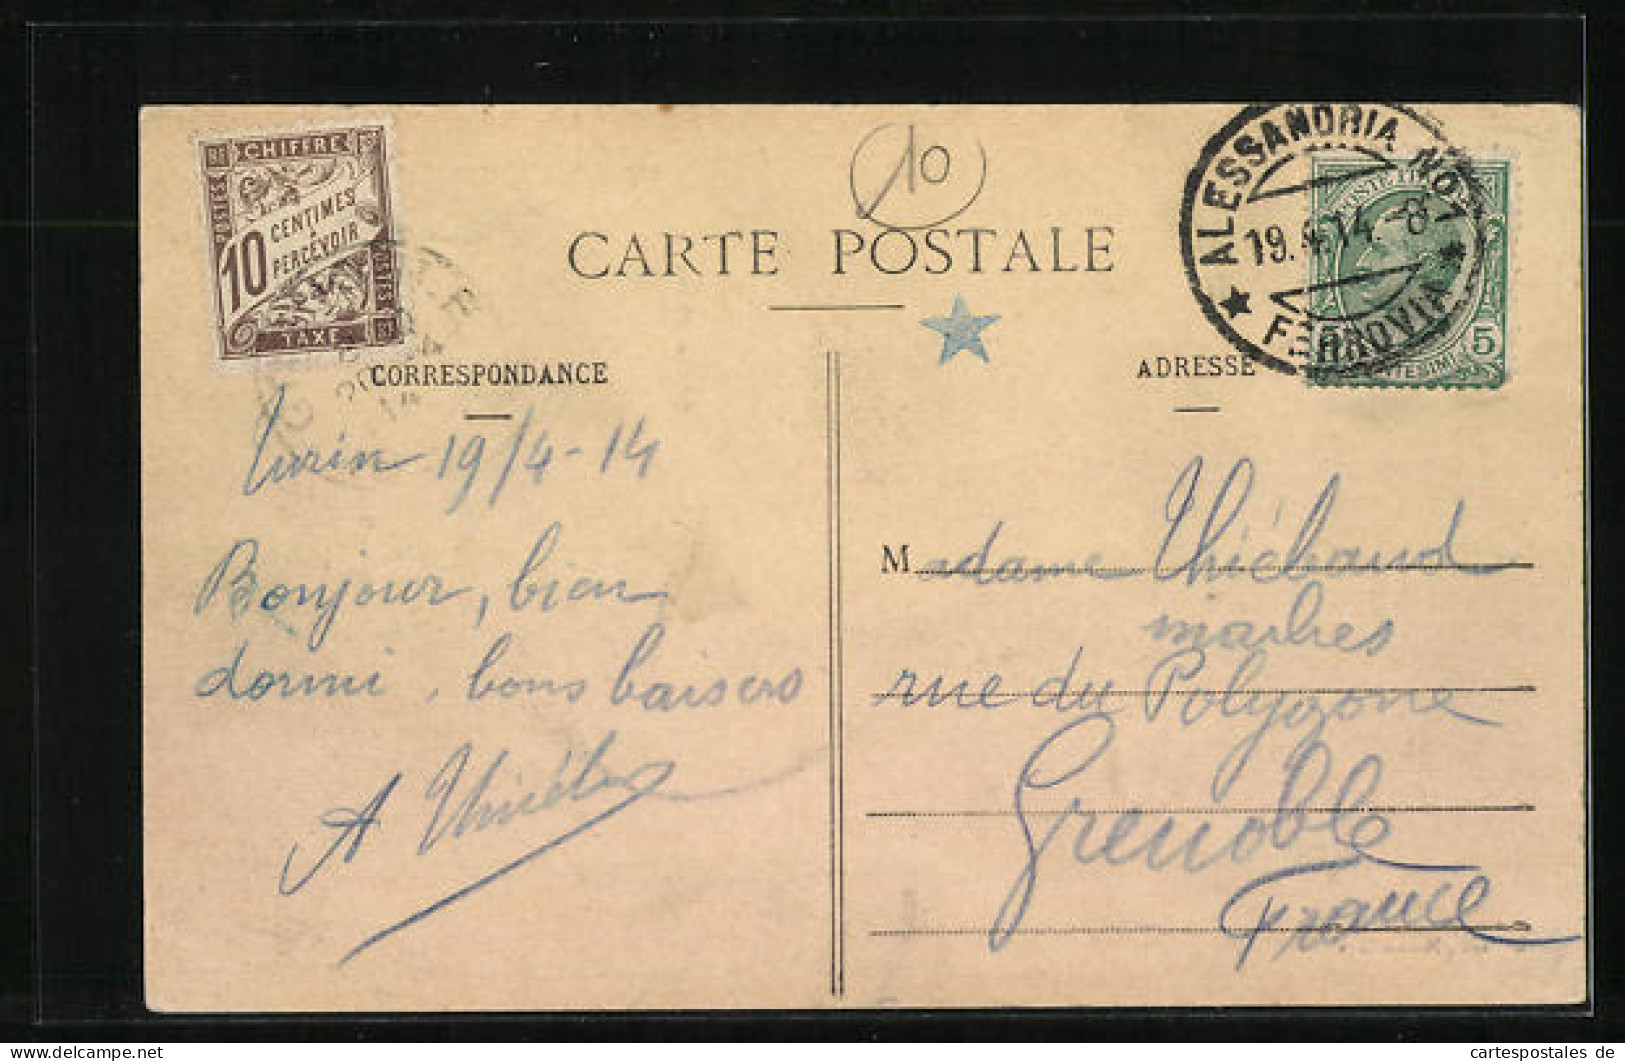 POSTES RF CHIFFRE
10 CENTIMES
A PERCEVOIR
POSTES
TAXE RF
10
CARTE POSTALE
ALESSANDRIA NO 1
19.4.14.-8
FERROVIA
POSTE ITALIANE
5 CENTESIMI 5
CORRESPONDANCE
Turin 19/4-14
Bonjour, bien
dormi, bons baisers
A
ADRESSE
Madame Thiébaud
marbres
rue du Polygone
Grenoble
France
cartespostales de